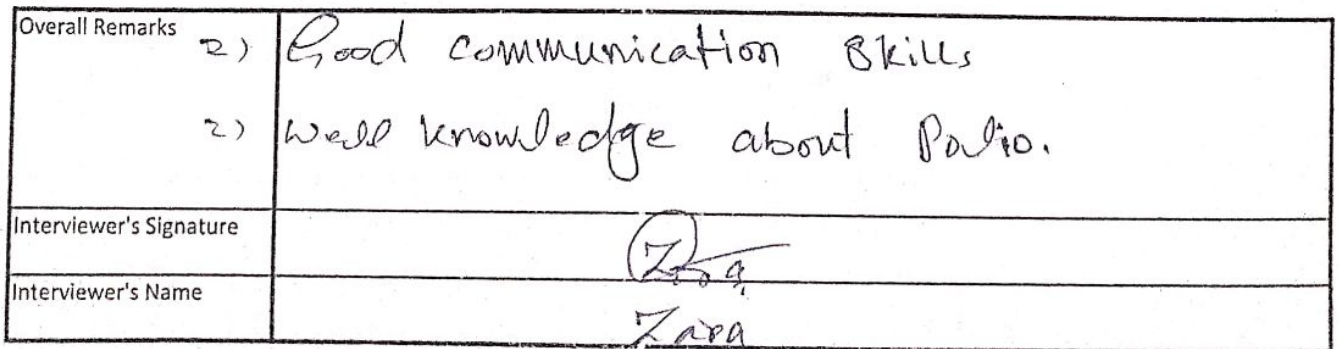 Overall Remarks
2) Good communication Skills
2) Well knowledge about Polio.
Interviewer's Signature
Zara
Interviewer's Name
Zara